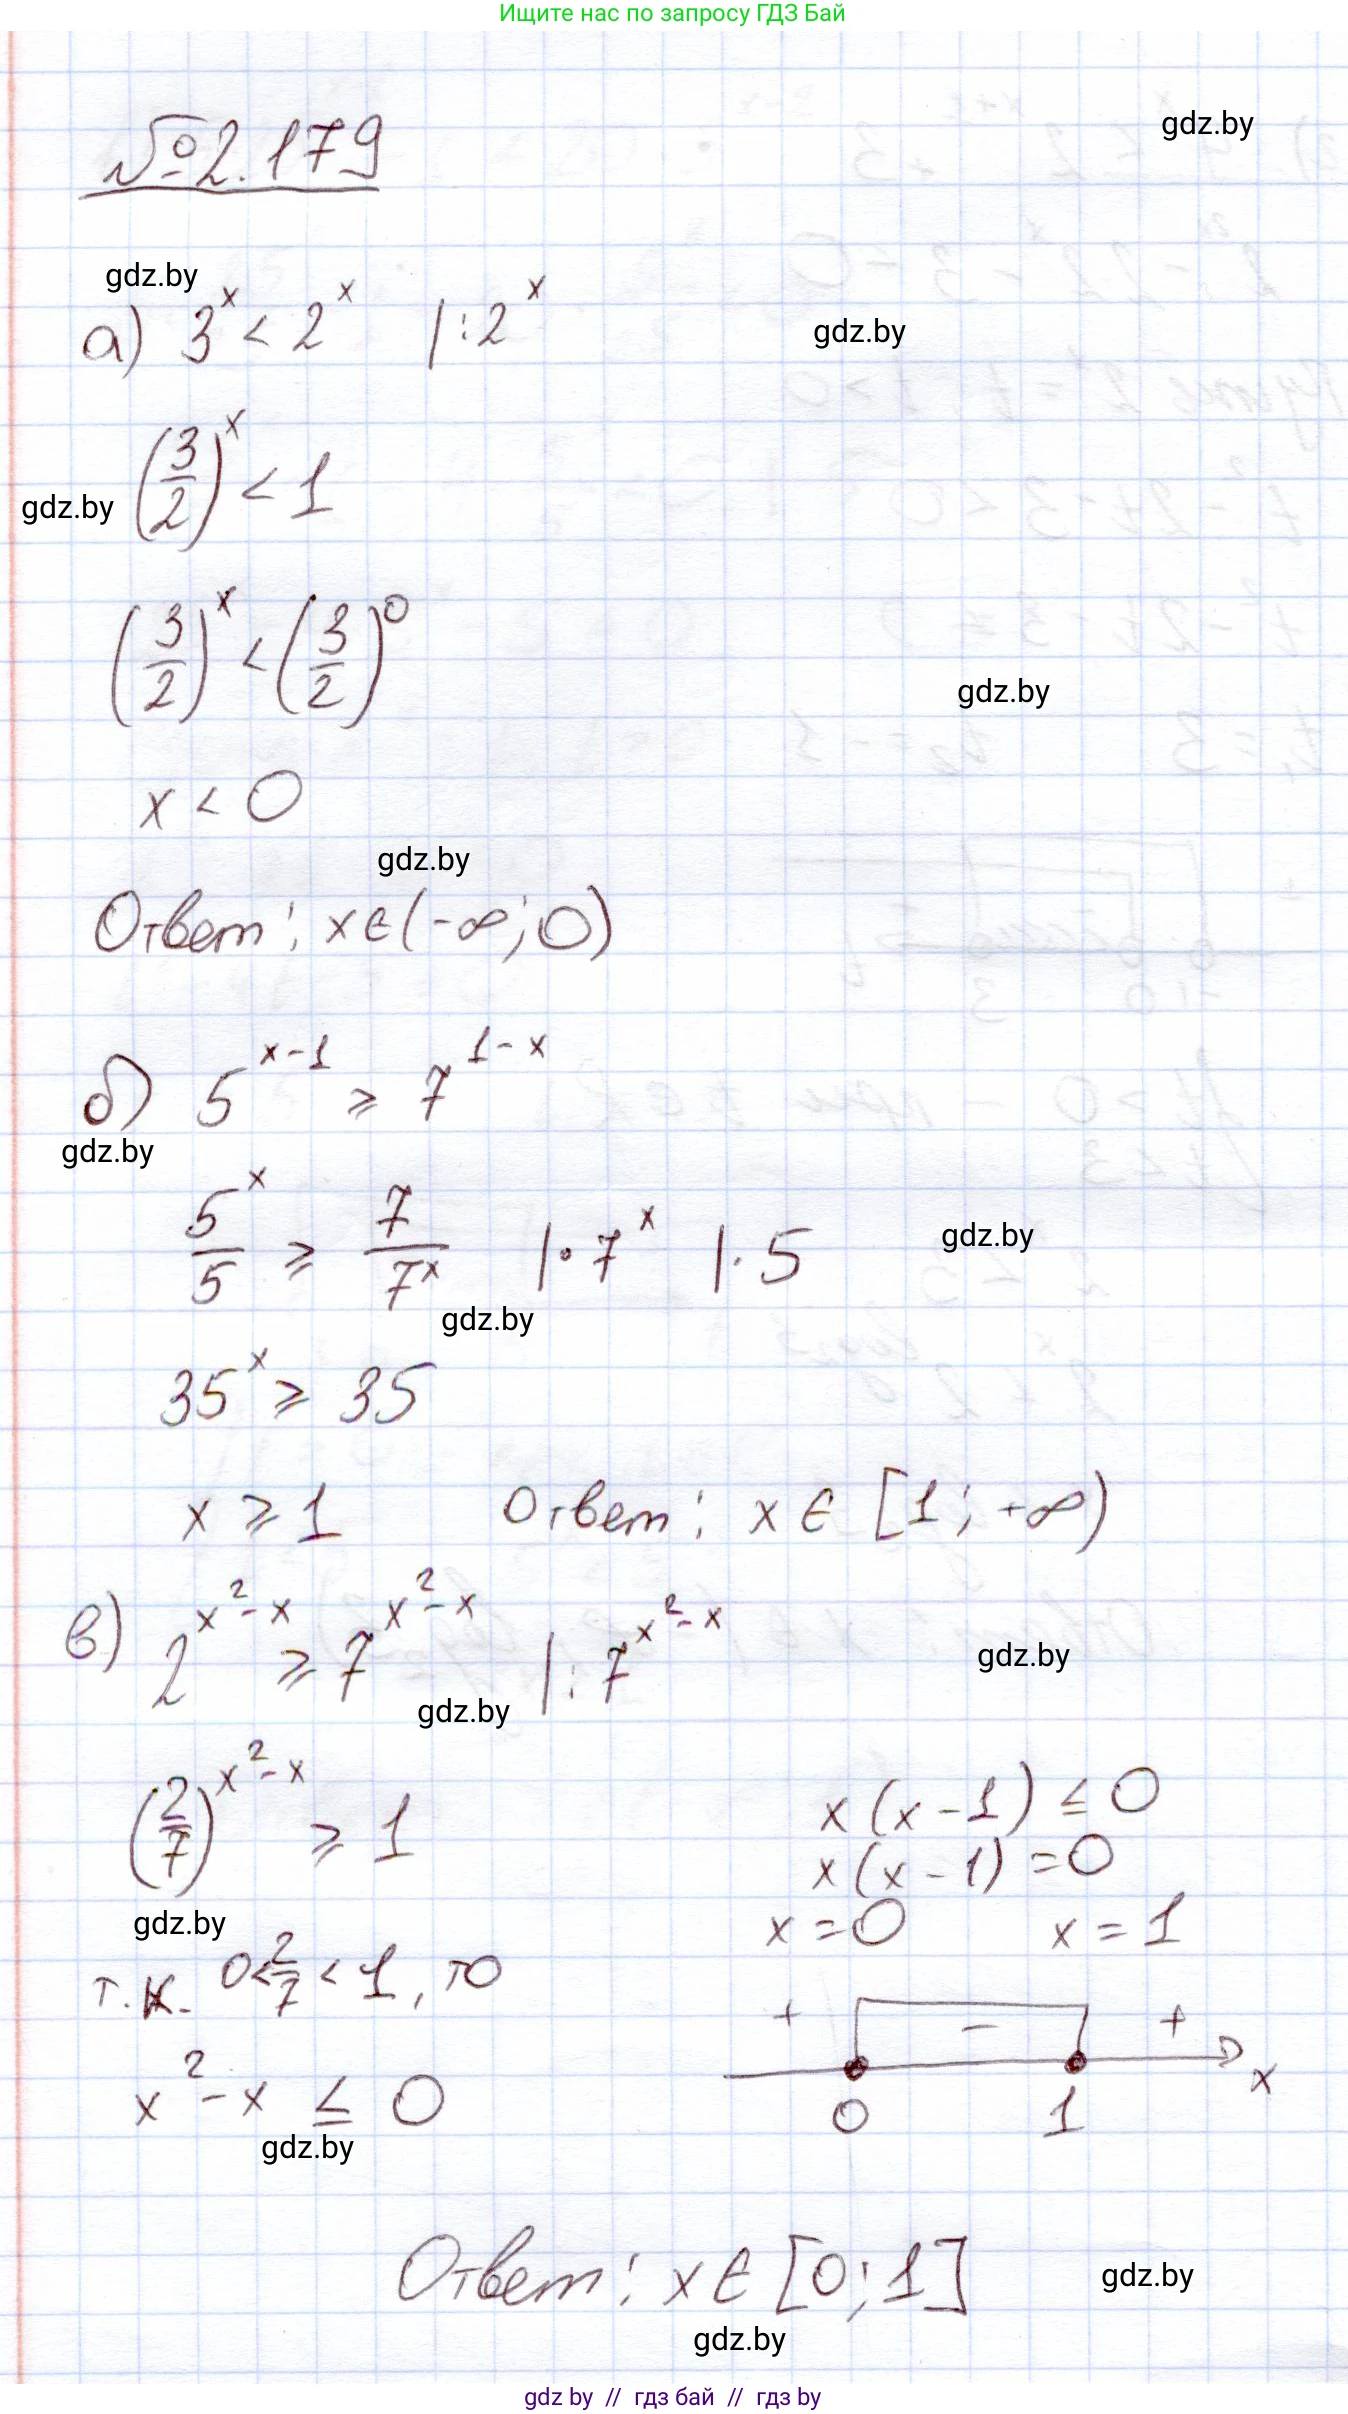 Ищите нас по запросу ГДЗ Бай
№2.179
gdz.by
gdz.by
а) 3^x < 2^x |:2^x
gdz.by
(3/2)^x < 1
gdz.by
(3/2)^x < (3/2)^0
gdz.by
x < 0
gdz.by
Ответ: x∈(-∞;0)
б) 5^(x-1) ⩾ 7^(1-x)
gdz.by
5^x/5 ⩾ 7/7^x |·7^x |·5
gdz.by
gdz.by
35^x ⩾ 35
x ⩾ 1 Ответ: x∈[1;+∞)
в) 2^(x^2-x) ⩾ 7^(x^2-x) |:7^(x^2-x)
gdz.by
gdz.by
(2/7)^(x^2-x) ⩾ 1
gdz.by
т.к. 0<2/7<1, то
x^2-x ≤ 0
gdz.by
x(x-1) ≤ 0
x(x-1)=0
x=0 x=1
+ - +
0 1 x
Ответ: x∈[0;1]
gdz.by
gdz.by
gdz by // гдз бай // гдз by